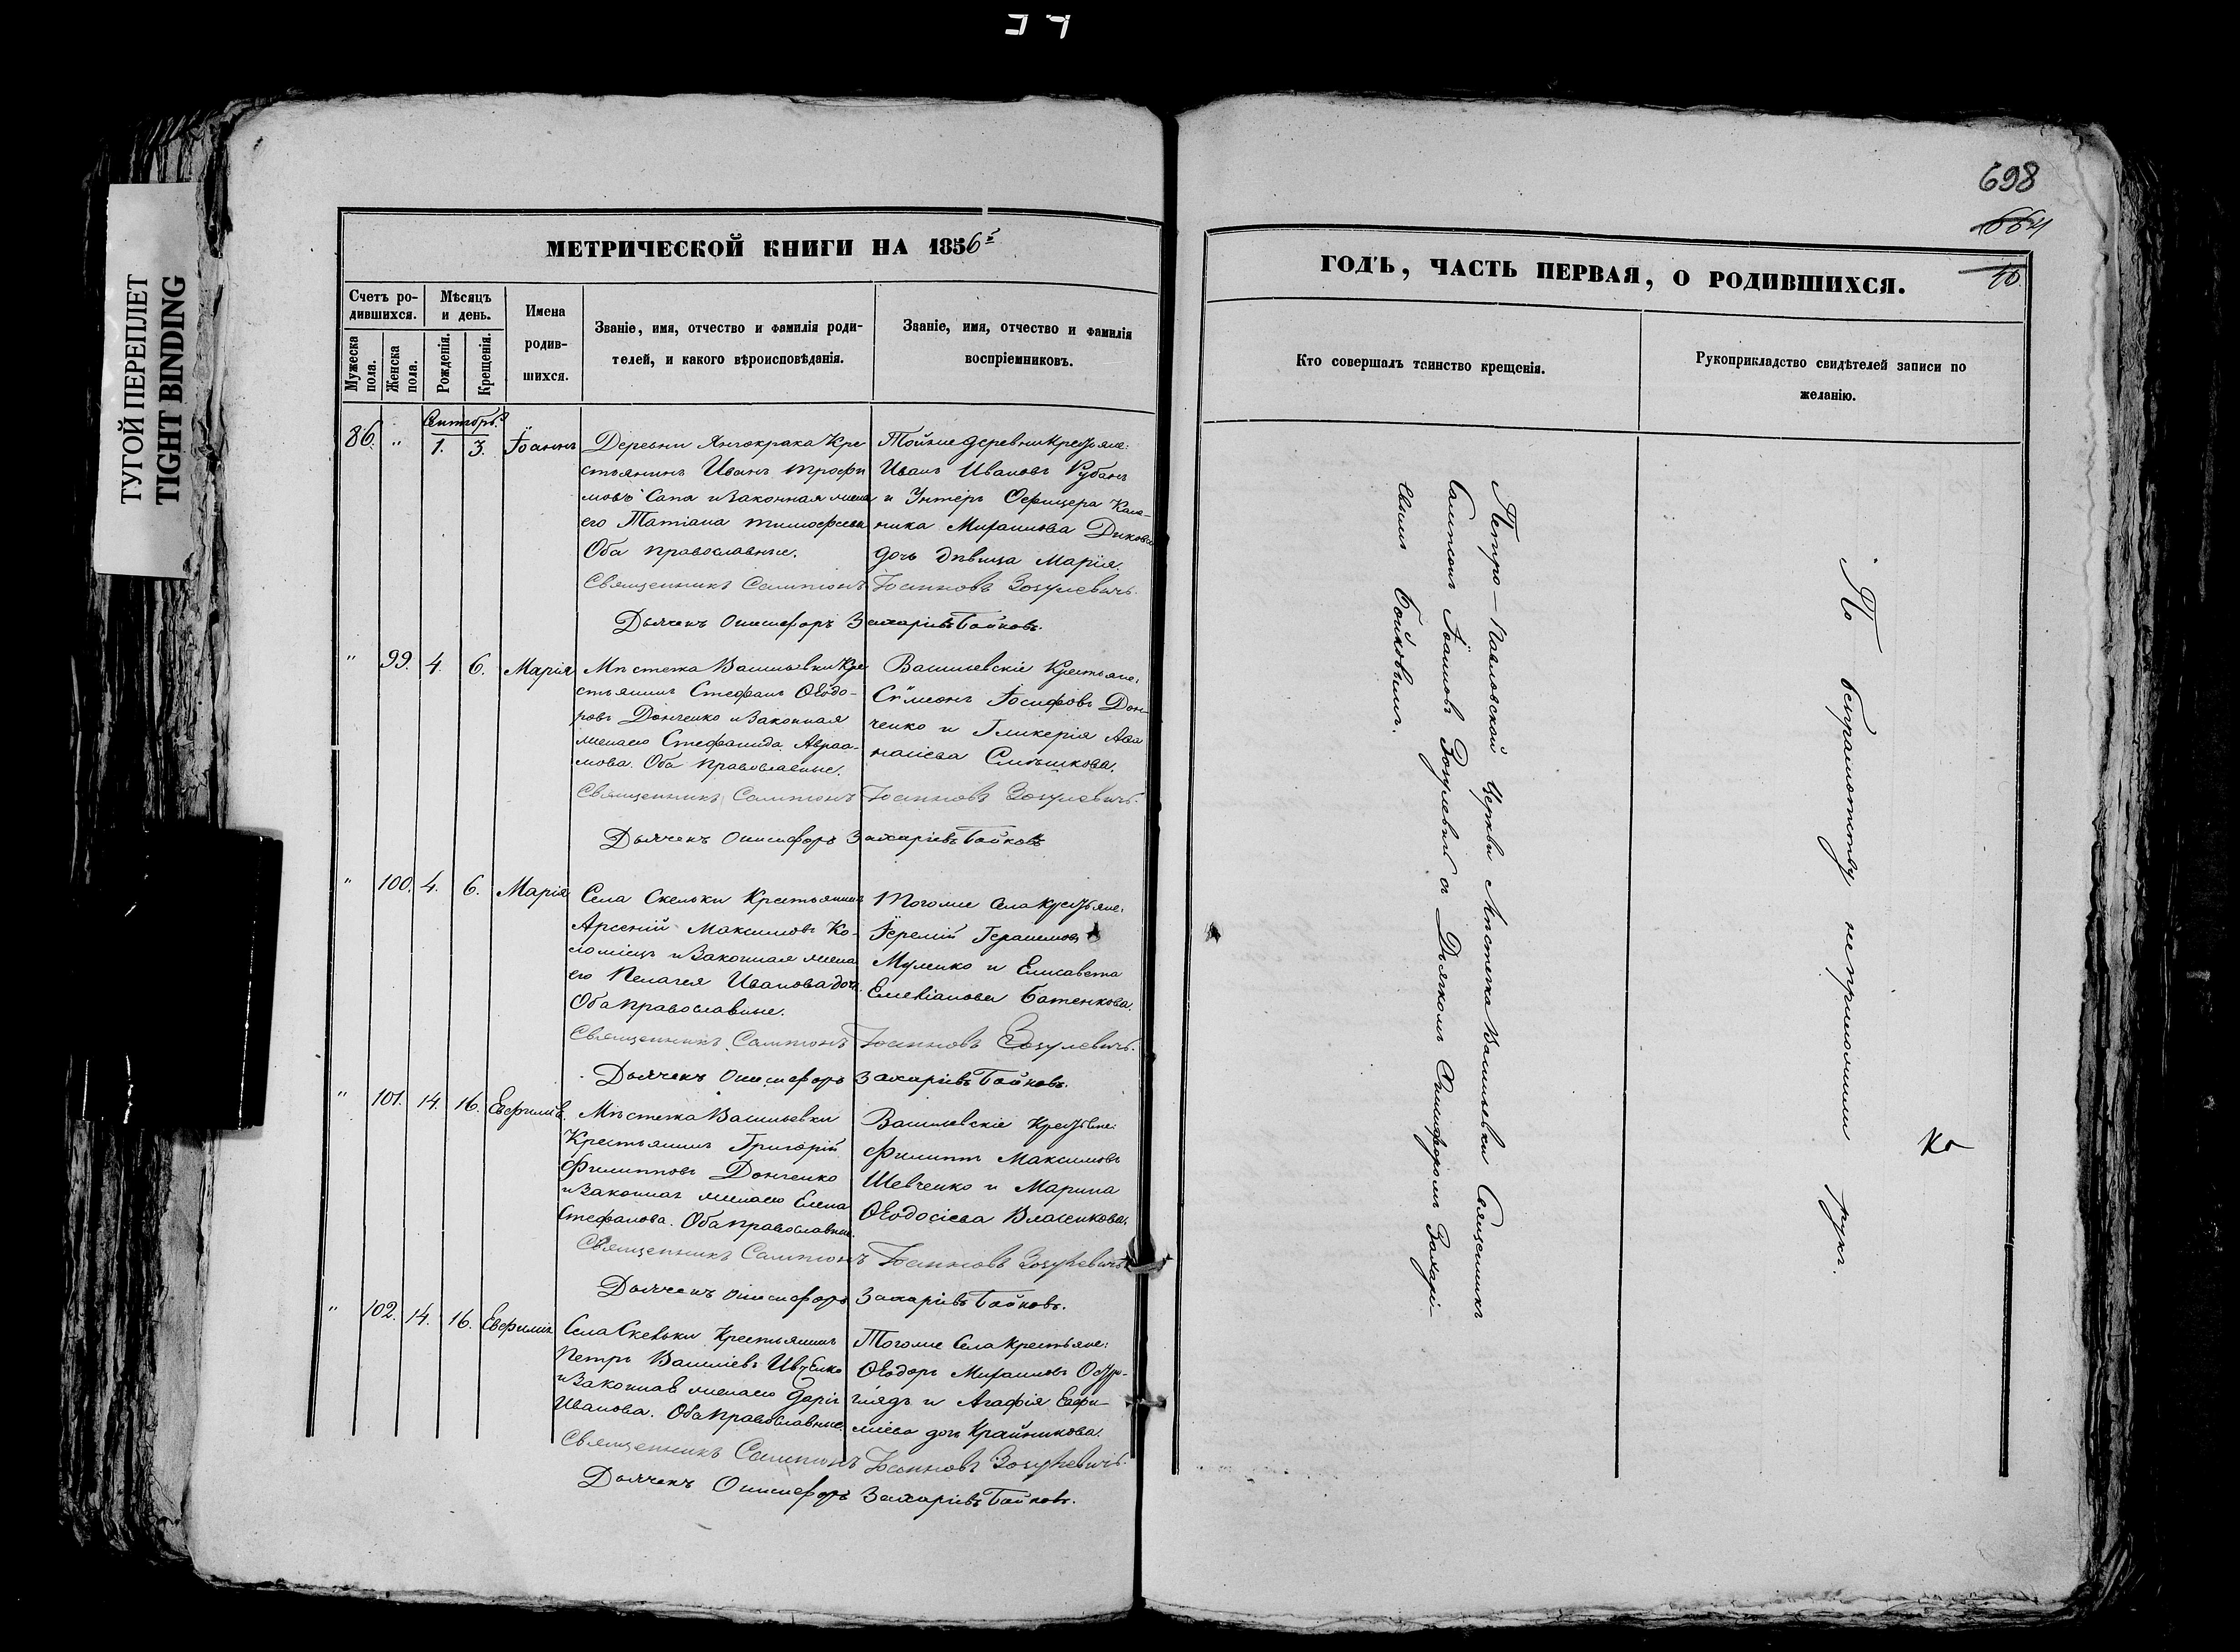 ТУГОЙ ПЕРЕПЛЕТ
TIGHT BINDING
МЕТРИЧЕСКОЙ КНИГИ НА 1856й
Счетъ ро-
дившихся.
Мужеска пола.
Женска пола.
Мѣсяцъ
и день.
Рожденія.
Крещенія.
Имена
родив-
шихся.
Званіе, имя, отчество и фамилія роди-
телей, и какого вѣроисповѣданія.
Званіе, имя, отчество и фамилія
воспріемниковъ.
86. " Сентябрь. 1. 3. Іоаннъ
Деревни Янчокрака Кре
стьянинъ Иванъ Трофи
мовъ Сапа и Законная жена
его Татіана Тимофеева
Оба православные.
Тойже деревни Крестьяне:
Иванъ Ивановъ Рубанъ
и Унтеръ Офицера
Михаилова Дикова
дочь дѣвица Марія.
Священникъ Сампсонъ Іоанновъ Зозулевичъ.
Дьячекъ Онисифоръ Захаріевъ Бойковъ.
" 99. 4. 6. Марія
Мѣстечка Васильевки Кре
стьянинъ Стефанъ Ѳеодо-
ровъ Донченко и Законная
жена его Стефанида Авраа-
мова. Оба православные.
Васильевскіе Крестьяне:
Сѵмеонъ Іосифовъ Дон-
ченко и Гликерія Аѳа
насіева
Священникъ Сампсонъ Іоанновъ Зозулевичъ.
Дьячекъ Онисифоръ Захаріевъ Бойковъ
" 100. 4. 6. Марія
Села Скельки Крестьянинъ
Арсеній Максимовъ Ко-
ломіецъ и Законная жена
его Пелагея Иванова дочь.
Оба православные.
Тогоже Села Крестьяне:
Іеремій Герасимовъ
Муленко и Елисавета
Емеліанова Батенкова.
Священникъ Сампсонъ Іоанновъ Зозулевичъ.
Дьячекъ Онисифоръ Захаріевъ Бойковъ.
" 101. 14. 16. Евфимія
Мѣстечка Васильевки
Крестьянинъ Григорій
Филипповъ Донченко
и Законная жена его Елена
Стефанова. Оба православные.
Васильевскіе Крестьяне:
Филиппъ Максимовъ
Шевченко и Марина
Ѳеодосіева Власенкова.
Священникъ Сампсонъ Іоанновъ Зозулевичъ
Дьячекъ Онисифоръ Захаріевъ Бойковъ.
" 102. 14. 16. Евфимія
Села Скельки Крестьянинъ
Петръ Василіевъ Ивченко
и Законная жена его Дарія
Иванова. Оба православные.
Тогоже Села Крестьяне:
Ѳеодоръ Михаиловъ Остро-
глядъ и Агафія Евфи-
міева дочь Крайникова.
Священникъ Сампсонъ Іоанновъ Зозулевичъ.
Дьячекъ Онисифоръ Захаріевъ Бойковъ.
698
664
40.
ГОДЪ, ЧАСТЬ ПЕРВАЯ, О РОДИВШИХСЯ.
Кто совершалъ таинство крещенія.
Рукоприкладство свидѣтелей записи по
желанію.
Петро-Павловской Церкви Мѣстечка Васильевки Священникъ
Сампсонъ Іоанновъ Зозулевичъ съ Дьячкомъ Онисифоромъ Захарі-
евымъ Бойковымъ.
По безграмотству неприложили рукъ.